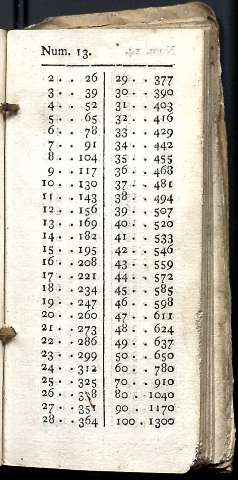 Num. 13.
2 . . 26
3 . . 39
4 . . 52
5 . . 65
6 . . 78
7 . . 91
8 . . 104
9 . . 117
10 . . 130
11 . . 143
12 . . 156
13 . . 169
14 . . 182
15 . . 195
16 . . 208
17 . . 221
18 . . 234
19 . . 247
20 . . 260
21 . . 273
22 . . 286
23 . . 299
24 . . 312
25 . . 325
26 . . 338
27 . . 351
28 . . 364
29 . . 377
30 . . 390
31 . . 403
32 . . 416
33 . . 429
34 . . 442
35 . . 455
36 . . 468
37 . . 481
38 . . 494
39 . . 507
40 . . 520
41 . . 533
42 . . 546
43 . . 559
44 . . 572
45 . . 585
46 . . 598
47 . . 611
48 . . 624
49 . . 637
50 . . 650
60 . . 780
70 . . 910
80 . . 1040
90 . . 1170
100 . . 1300